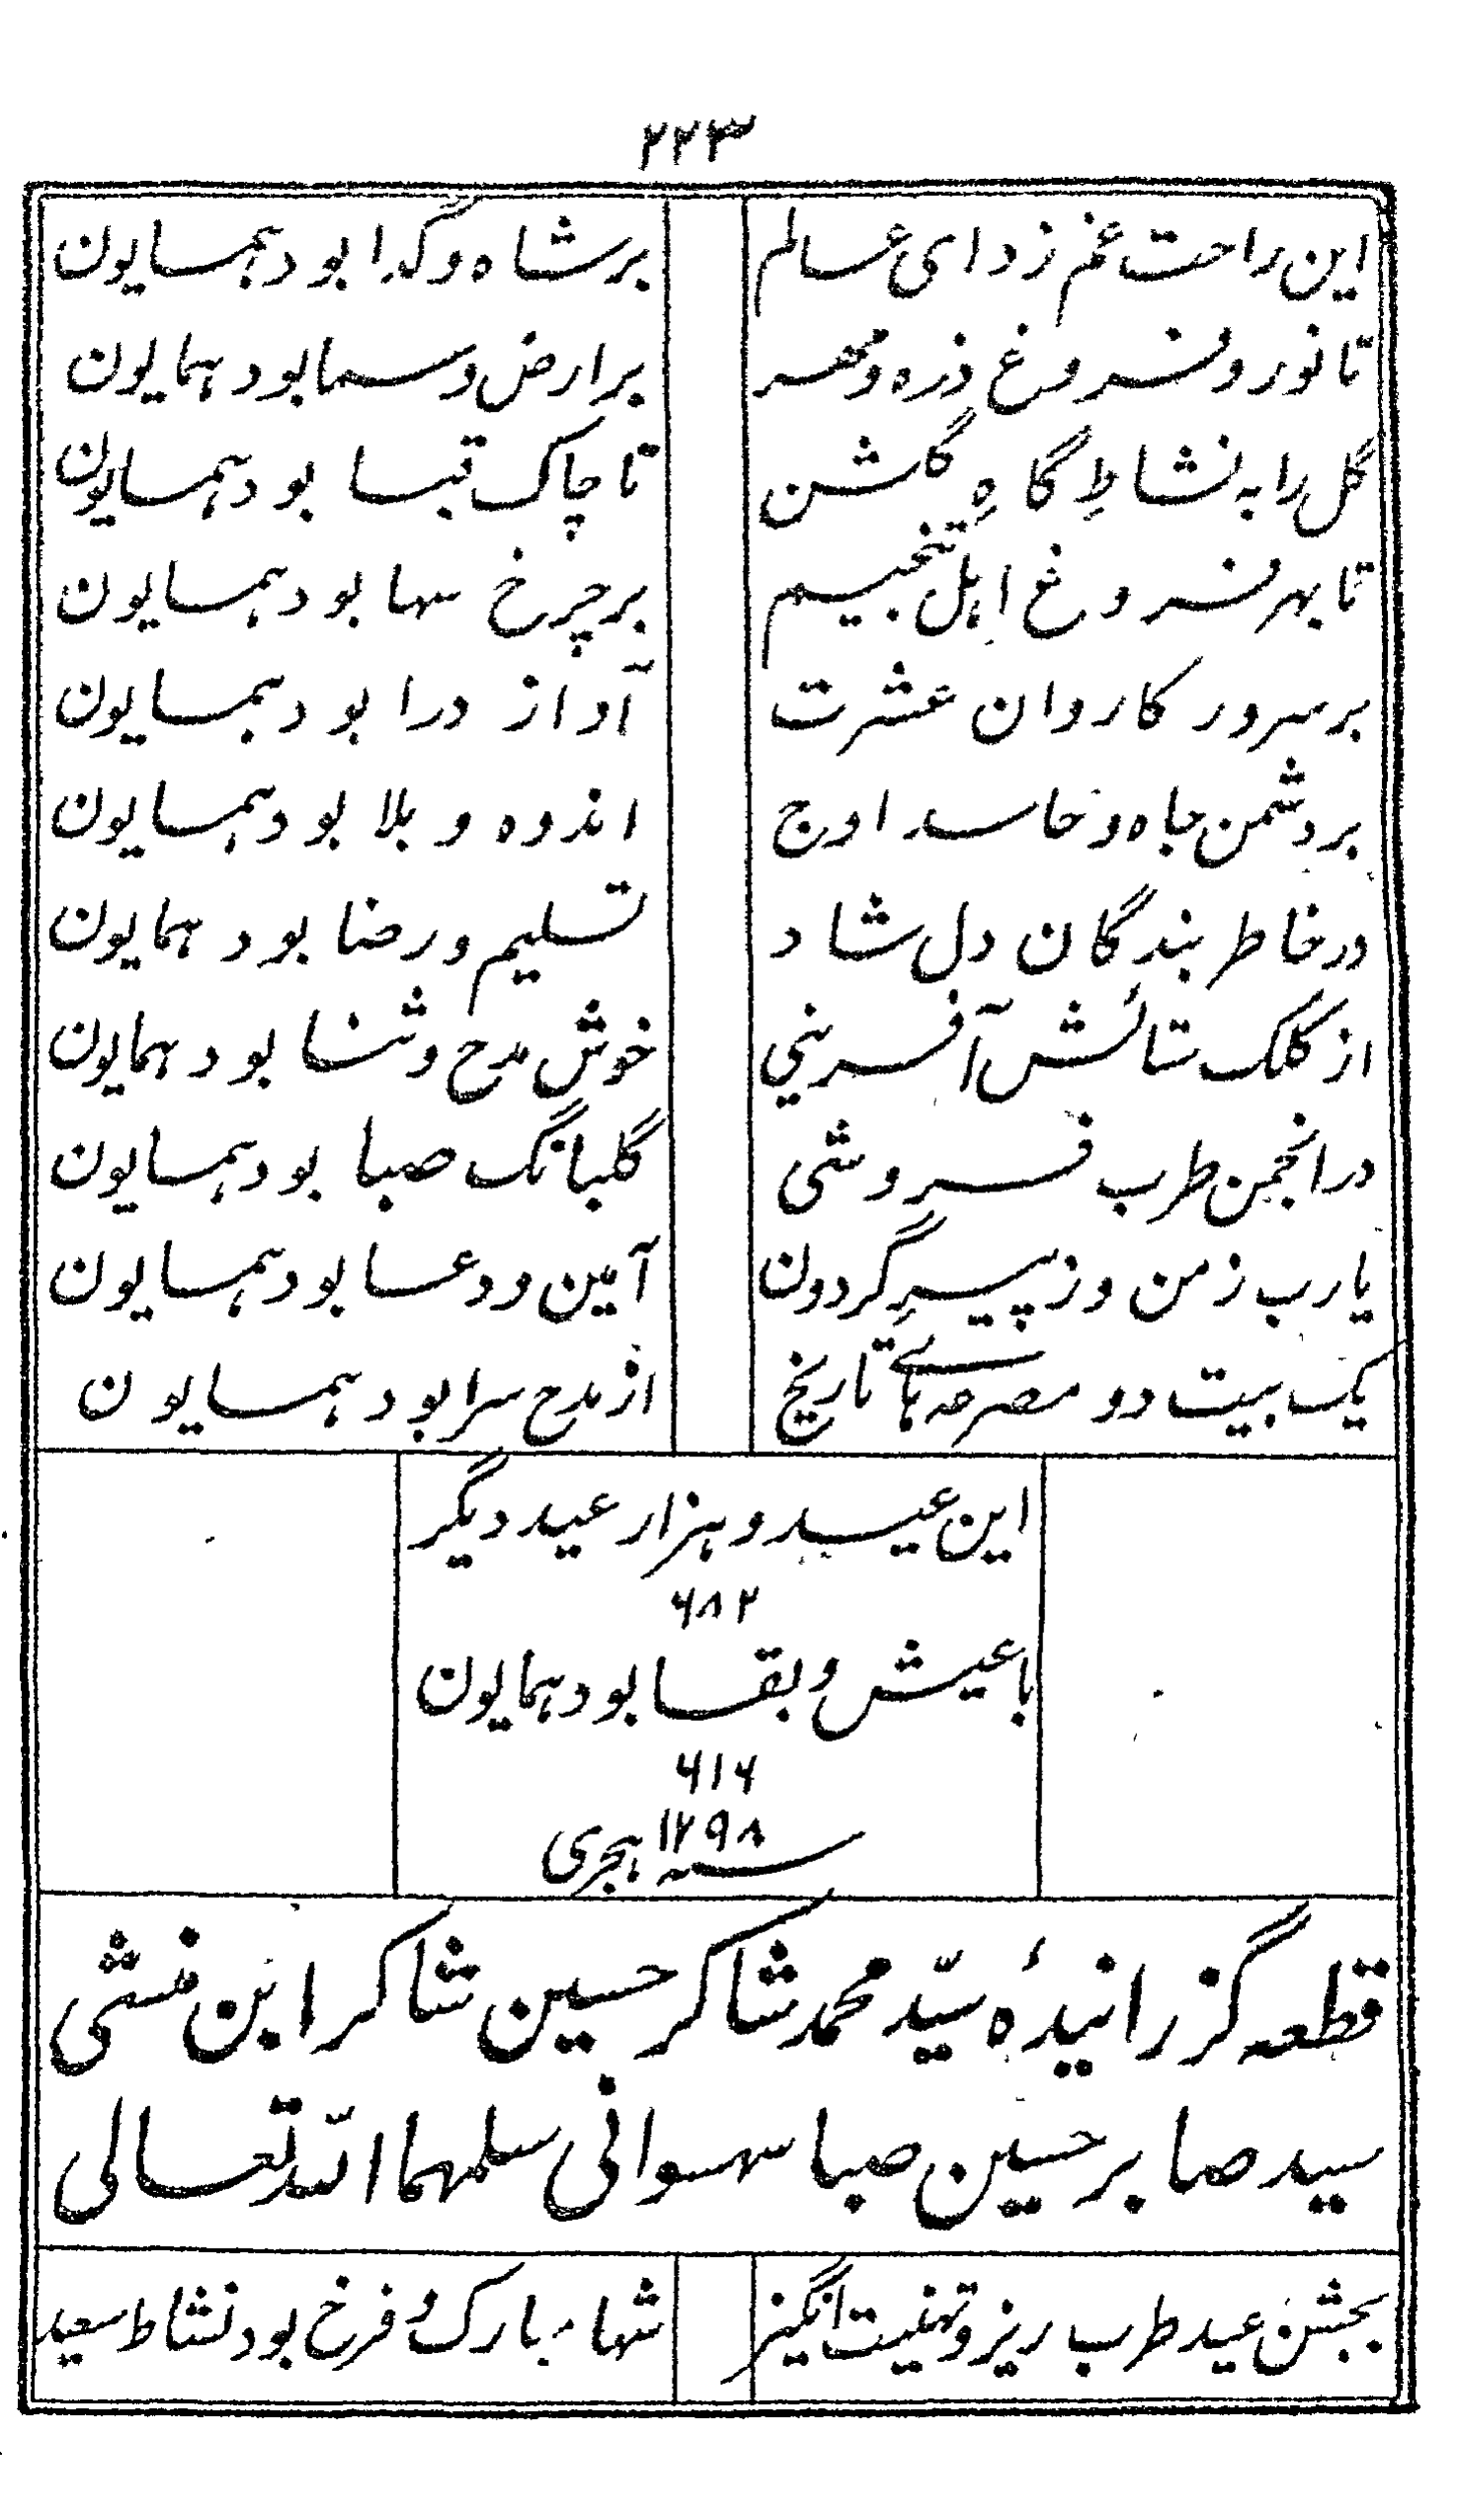 ۲۲۳
این راحت غم زدای عالم برشاه و گدا بود همایون
تا نور و فروغ ذره و مهر برارض و سما بود همایون
گل را به نشاطِ گاہِ گلشن تا چاک قبا بود همایون
تا بهر فروغ اہل تنجیم برچرخ سها بود همایون
برسرور کاروان عشرت آواز درا بود همایون
بردشمن جاہ و حاسد اوج اندوه و بلا بود همایون
درخاطر بندگان دل شاد تسلیم و رضا بود همایون
از کلک ستائش آفرینی خوش مدح و ثنا بود همایون
درانجمن طرب فروشی گلبانگ صبا بود همایون
یارب زمن و ز پیرِ گردون آمین و دعا بود همایون
یک بیت دو مصرعہ ہائے تاریخ از مدح سرا بود همایون
این عید و ہزار عید دیگر
۶۸۲
باعیش و بقا بود همایون
۶۱۶
سنہ ۱۲۹۸ ہجری
قطعہ گزرانیدۂ سیّد محمد شاکر حسین شاکر ابن منشی
سید صابر حسین صبا سہسوانی سلمہما اللّٰہ تعالی
بجشن عید طرب ریز و تہنیت انگیز شہا مبارک و فرخ بود نشاط سعید